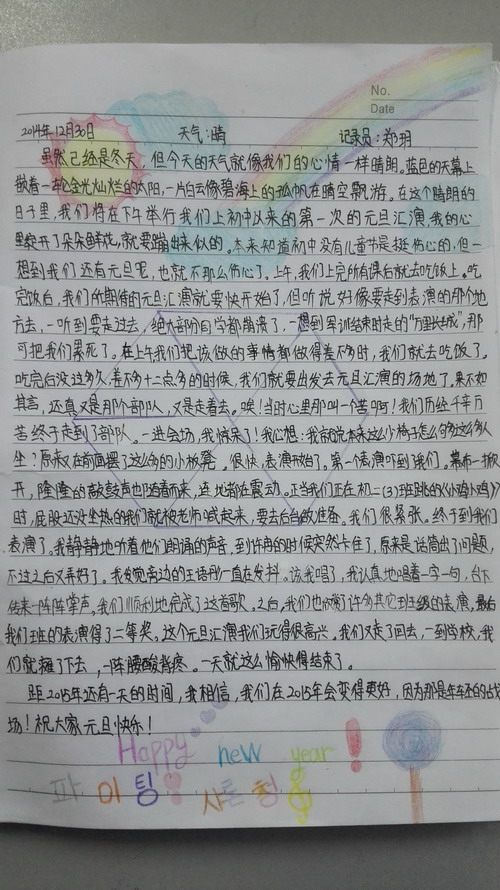 No.
Date
2014年12月30日 天气:晴 记录员:郑玥
虽然已经是冬天,但今天的天气就像我们的心情一样晴朗。蓝色的天幕上
嵌着一轮金光灿烂的太阳,一片白云像碧海上的孤帆在晴空飘游。在这个晴朗的
日子里,我们将在下午举行我们上初中以来的第一次的元旦汇演,我的心
里绽开了朵朵鲜花,就要蹦出来似的。本来知道初中没有儿童节是挺伤心的,但一
想到我们还有元旦呢,也就不那么伤心了。上午,我们上完所有课后就去吃饭上。吃
完饭后,我们所期待的元旦汇演就要快开始了,但听说好像要走到表演的那个地
方去,一听到要走过去,绝大部分同学都崩溃了,一想到军训结束时走的“万里长城”,那
可把我们累死了。在上午我们把该做的事情都做得差不多时,我们就去吃饭了。
吃完后没过多久,差不多十二点多的时候,我们就要出发去元旦汇演的场地了。果不如
其言,还真又是那个部队,又是走着去。唉!当时心里那叫一个苦啊!我们历经千辛万
苦终于走到了部队。一进会场,我惊呆了!我心想:我就说本来这么少椅子怎么够这么多人
坐?原来在前面摆了这么多的小板凳。很快,表演开始了。第一个表演吓到我们。幕布一掀
开,隆隆的鼓声也随着而来,连地都在震动。正当我们正在初二(3)班跳的《小鸡小鸡》
时,屁股还没坐热的我们就被老师喊起来,要去后台做准备。我们很紧张。终于到我们
表演了。我静静地听着他们朗诵的声音,到许冉的时候突然卡住了,原来是话筒出了问题,
不过之后又弄好了。我发觉旁边的王语丹一直在发抖。该我唱了,我认真地唱着一字一句,台下
传来一阵阵掌声。我们顺利地完成了这首歌。之后,我们也欣赏了许多其它班级的表演,最后
我们班的表演得了二等奖。这个元旦汇演我们玩得很高兴。我们又走了回去,一到学校,我
们就瘫了下去,一阵腰酸背疼。一天就这么愉快得结束了。
距2015年还有一天的时间,我相信,我们在2015年会变得更好,因为那是年年的战
场!祝大家元旦快乐!
Happy new year!
파이팅 사춘청